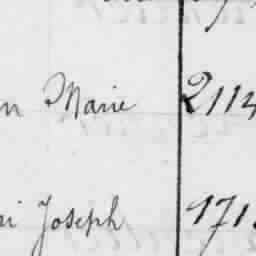 n Marie 2114
ri Joseph 171